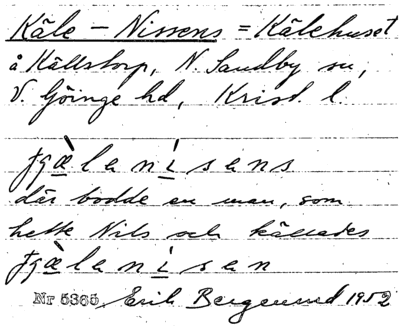 Käle - Nissens = Kälehuset
å Källstorp, N. Sandby sn,
V. Göinge hd, Krist. l.
tjgæ̀lanìsens
där bodde en man, som
hette Nils och kallades
tjgæ̀lanìsen
Nr 5365. Erik Bergensund 1952